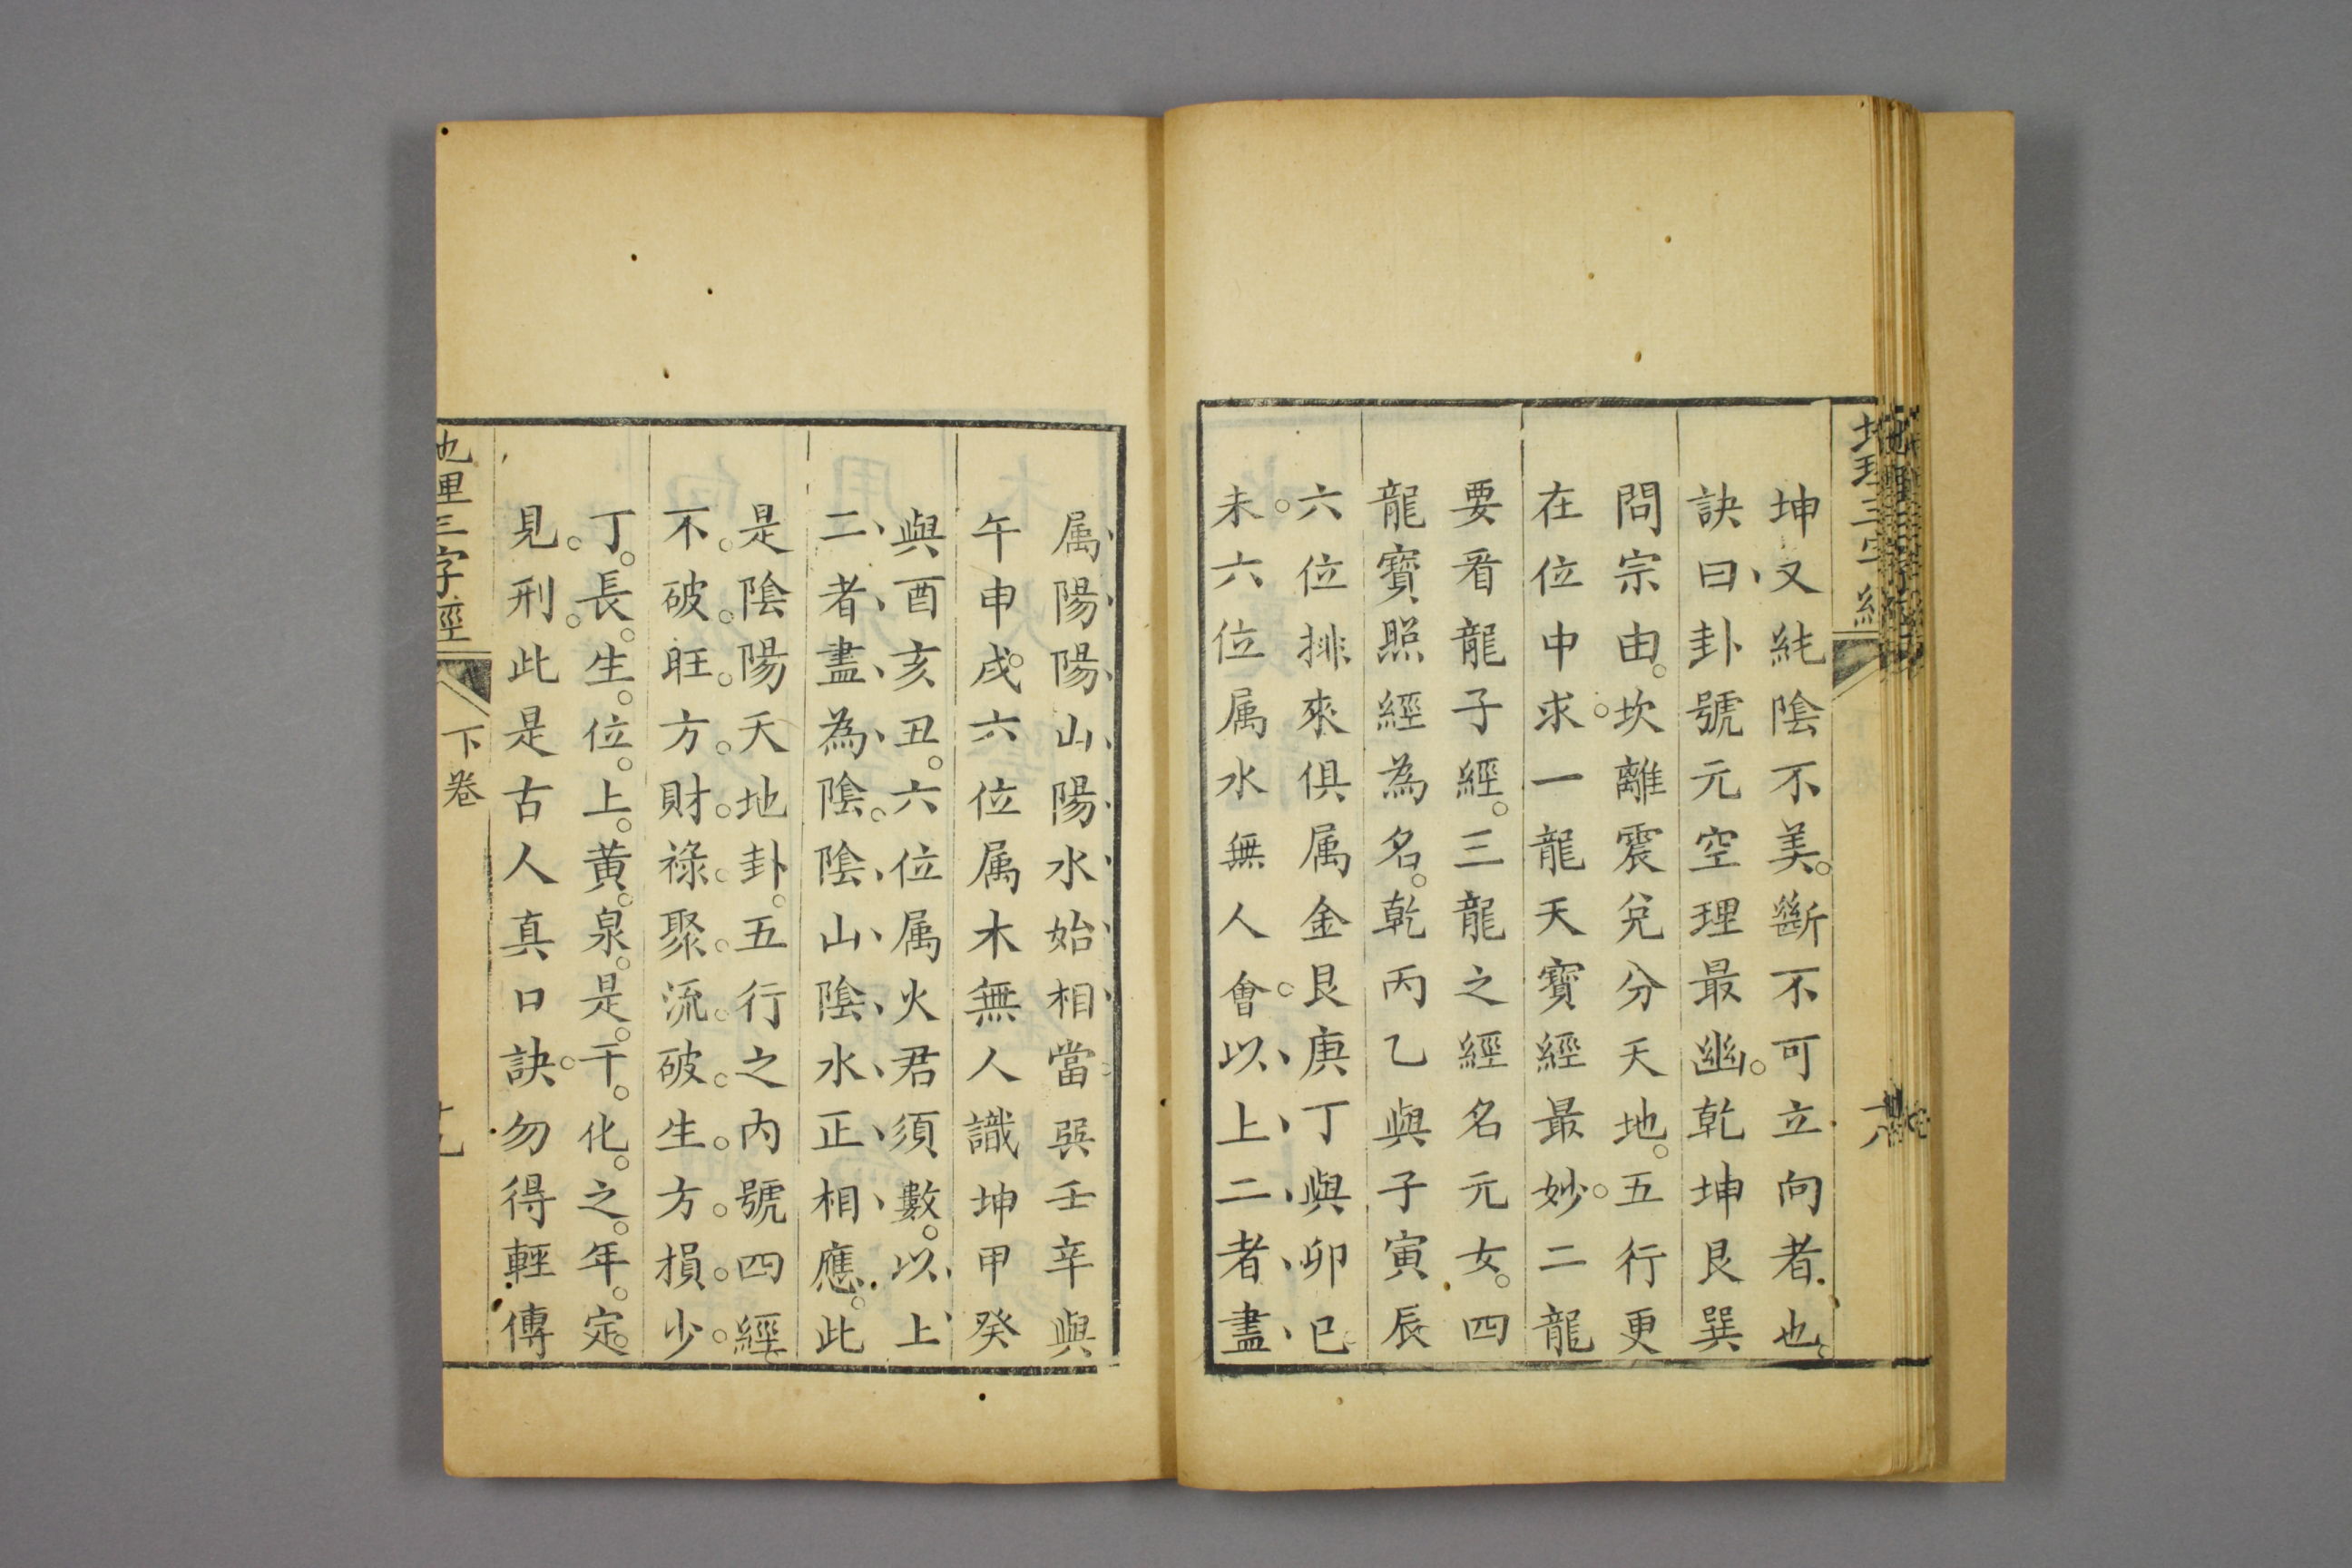 地理三字經
十八
坤又純陰不美。斷不可立向者也。
訣曰、卦號元空理最幽。乾坤艮巽
問宗由。坎離震兌分天地。五行更
在位中求。一龍天寶經最妙。二龍
要看龍子經。三龍之經名元女。四
龍寶照經為名。乾丙乙與子寅辰
六位排來俱属金艮庚丁與卯巳
未。六位属水無人會。以、上、二、者、盡、
属、陽、陽、山、陽、水、始、相、當。巽壬辛與
午申戌。六位属木無人識坤甲癸
與酉亥丑。六位属火君須數。以、上、
二、者、盡、為、陰。陰、山、陰、水、正、相、應。此
是陰陽天地卦。五行之內號四經。
不。破。旺。方。財。祿。聚。流。破。生。方。損。少。
丁。長。生。位。上。黄。泉。是。干。化。之。年。定。
見。刑。此是古人真口訣。勿得輕傳
地理三字經
下卷
十九